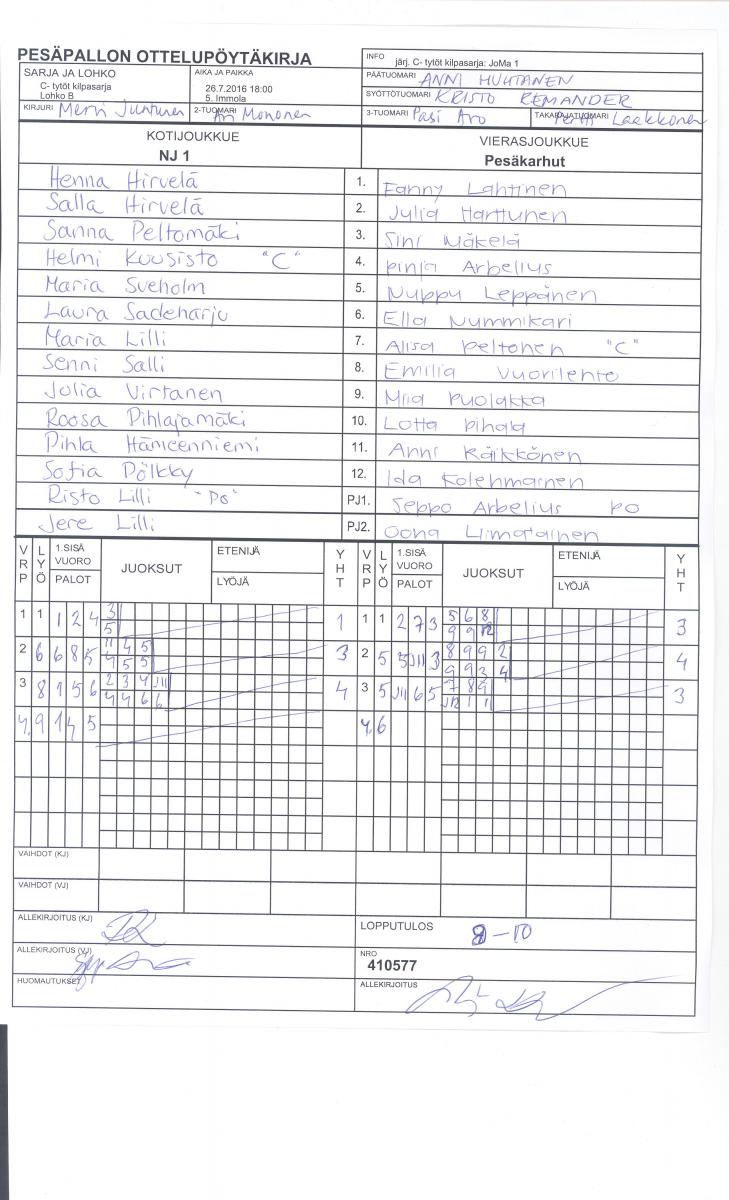 PESÄPALLON OTTELUPÖYTÄKIRJA
INFO järj. C- tytöt kilpasarja: JoMa 1
SARJA JA LOHKO
C- tytöt kilpasarja
Lohko B
AIKA JA PAIKKA
26.7.2016 18:00
5. Immola
PÄÄTUOMARI ANNI HUHTANEN
SYÖTTÖTUOMARI KRISTO REMANDER
KIRJURI Mervi Juntunen 2-TUOMARI Ari Mononen 3-TUOMARI Pasi Aro TAKARAJATUOMARI Pertti Laakkonen
KOTIJOUKKUE
NJ 1
VIERASJOUKKUE
Pesäkarhut
Henna Hirvelä 1. Fanny Lahtinen
Salla Hirvelä 2. Julia Harttunen
Sanna Peltomäki 3. Sini Mäkelä
Helmi Kuusisto "C" 4. Pinja Arbelius
Maria Sveholm 5. Nuppu Leppänen
Laura Sadeharju 6. Ella Nummikari
Maria Lilli 7. Alisa Peltonen "C"
Senni Salli 8. Emilia Vuorilehto
Julia Virtanen 9. Miia Puolakka
Roosa Pihlajamäki 10. Lotta Pihala
Pihla Hämeenniemi 11. Anni Räikkönen
Sofia Pölkky 12. Ida Kolehmainen
Risto Lilli "PO" PJ1. Seppo Arbelius PO
Jere Lilli PJ2. Oona Liimatainen
VRP LYÖ 1.SISÄ VUORO PALOT JUOKSUT ETENIJÄ LYÖJÄ YHT VRP LYÖ 1.SISÄ VUORO PALOT JUOKSUT ETENIJÄ LYÖJÄ YHT
1 1 1 2 4 3 1 1 1 2 7 3 5 6 8 3
5 9 9 12
2 6 6 8 5 11 4 5 3 2 5 5 J11 3 8 9 9 2 4
4 5 5 9 9 3 4
3 8 1 5 6 2 3 4 J11 4 3 5 J11 6 5 7 8 9 3
4 4 6 6 J12 1 1
4. 9 1 4 5 4. 6
VAIHDOT (KJ)
VAIHDOT (VJ)
ALLEKIRJOITUS (KJ)
LOPPUTULOS 8-10
ALLEKIRJOITUS (VJ)
NRO
410577
HUOMAUTUKSET
ALLEKIRJOITUS